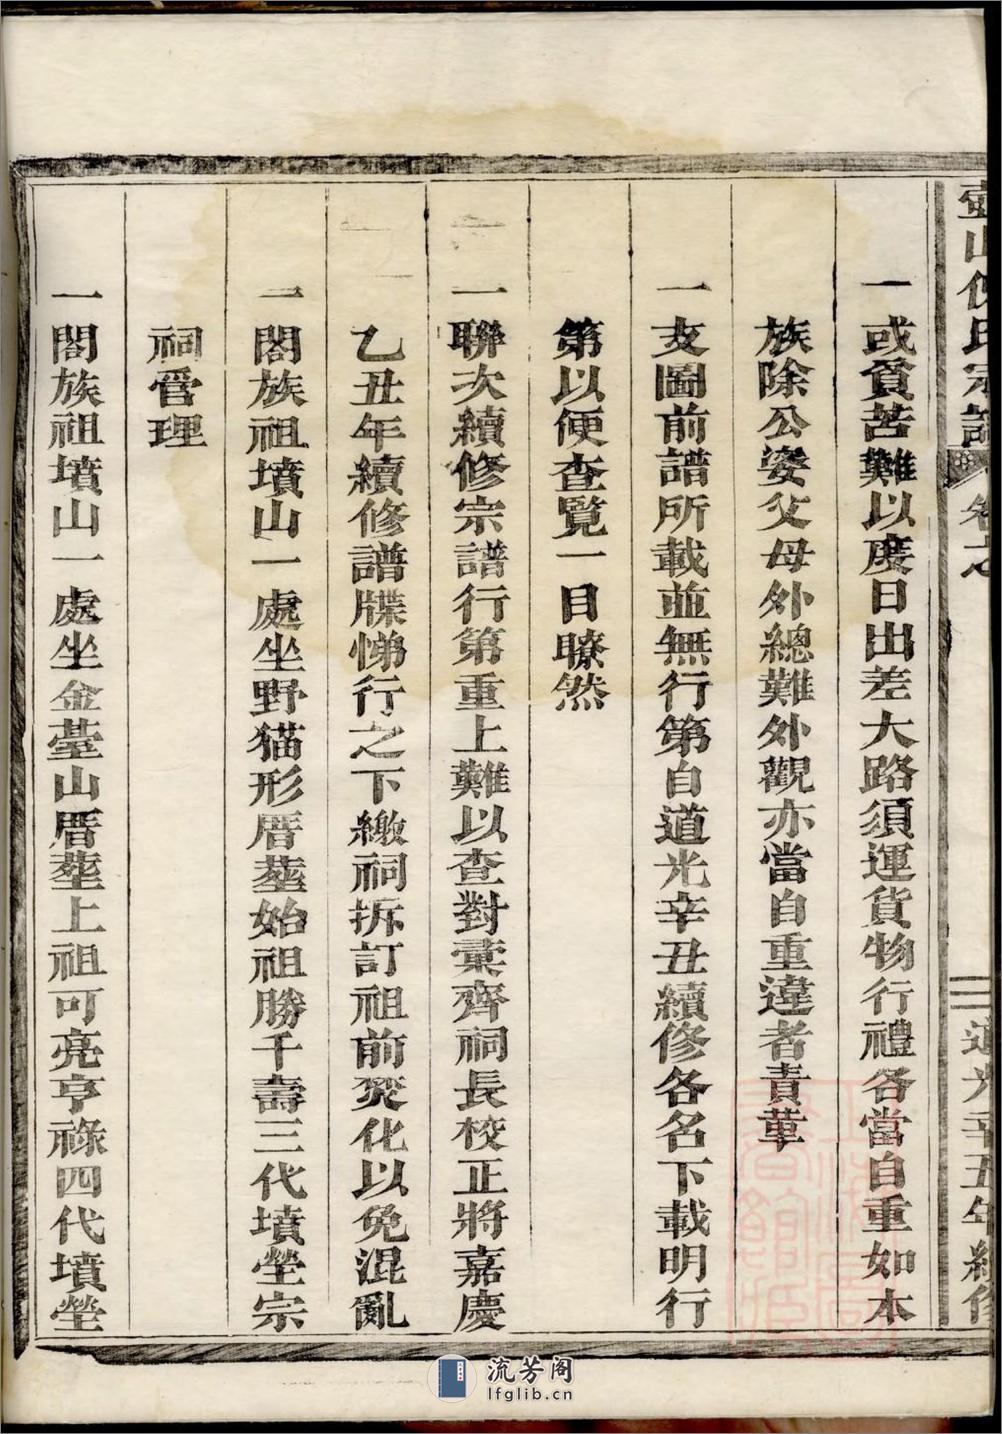 壺山倪氏宗譜 卷之 二 道光辛丑年續修
一或貧苦難以度日出差大路須運貨物行禮各當自重如本
族除公婆父母外總難外觀亦當自重違者責革
一支圖前譜所載並無行第自道光辛丑續修各名下載明行
第以便查覽一目瞭然
一聯次續修宗譜行第重上難以查對彙齊祠長校正將嘉慶
乙丑年續修譜牒悌行之下繳祠拆訂祖前焚化以免混亂
一閤族祖墳山一處坐野猫形厝塟始祖勝千壽三代墳塋宗
祠管理
一閤族祖墳山一處坐金臺山厝塟上祖可亮亨祿四代墳塋
流芳阁
lfglib.cn